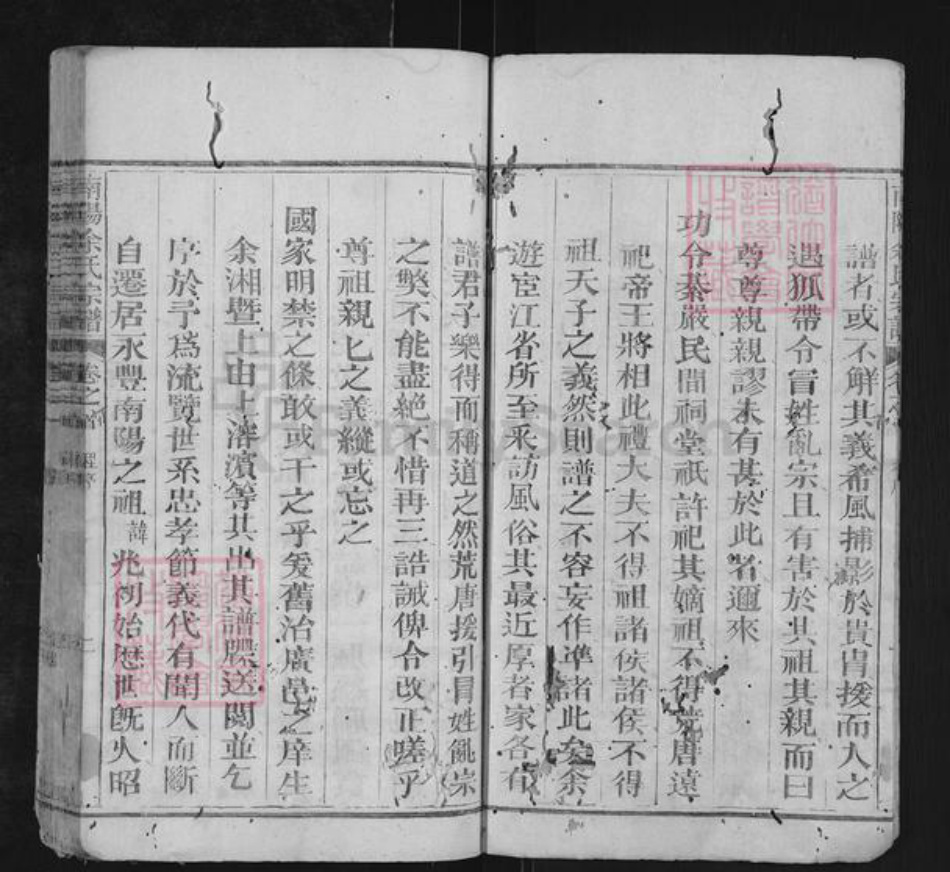 譜者或不鮮其義希風捕影於貴胄援而入之
遇狐帶令冒姓亂宗且有害於其祖其親而曰
尊尊親親謬未有甚於此者邇來
功令綦嚴民間祠堂祇許祀其嫡祖不得荒唐遠
祀帝王將相此禮大夫不得祖諸侯諸侯不得
祖天子之義然則譜之不容妄作準諸此矣余
遊宦江省所至釆訪風俗其最近厚者家各有
譜君子樂得而稱道之然荒唐援引冒姓亂宗
之獘不能盡絶不惜再三誥誡俾令改正嗟乎
尊祖親匕之義縱或忘之
國家明禁之條敢或干之乎爰舊治廣邑之庠生
余湘暨上由上濬濱等其出其譜牒送閲並乞
序於予爲流覽世系忠孝節義代有聞人而斷
自遷居永豐南陽之祖諱兆初始歷世旣火昭
南陽余氏宗譜 卷之首